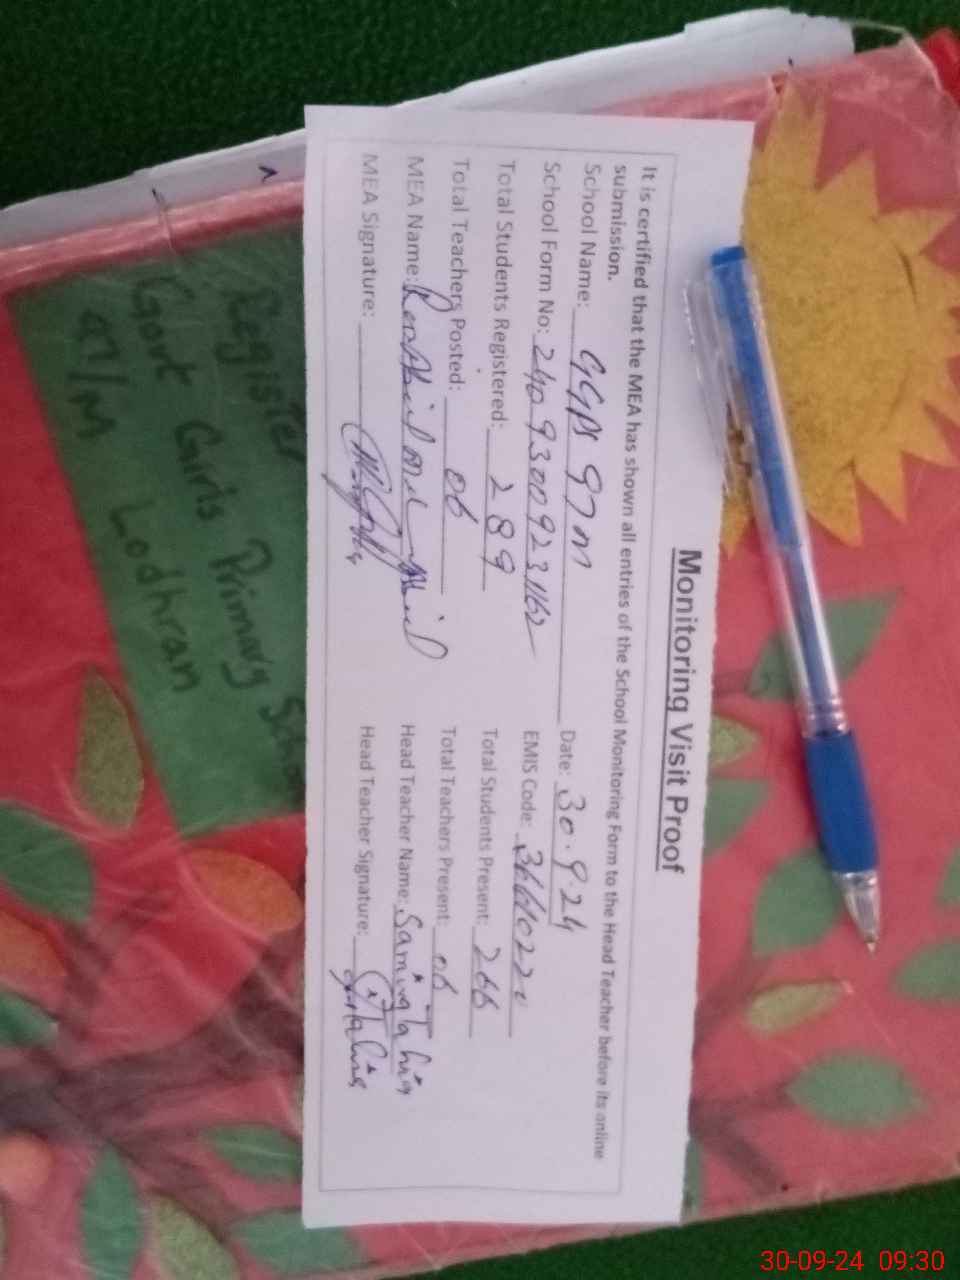 Monitoring Visit Proof
It is certified that the MEA has shown all entries of the School Monitoring Form to the Head Teacher before its online
submission.
School Name: GGPS 97 M Date: 30.9.24
School Form No: EMIS Code:
Total Students Registered: 289 Total Students Present: 266
Total Teachers Posted: 06 Total Teachers Present: 06
MEA Name: Head Teacher Name: Samina Tahir
MEA Signature: Head Teacher Signature:
Register
Govt Girls Primary
97/M Lodhran
30-09-24 09:30